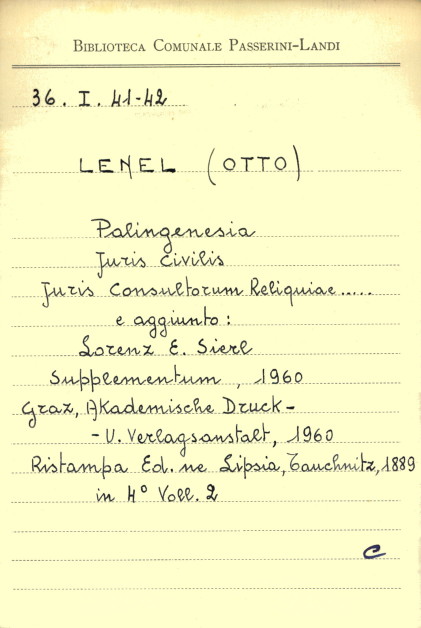 BIBLIOTECA COMUNALE PASSERINI-LANDI
36. I. 41-42
LENEL (OTTO)
Palingenesia
Juris Civilis
Juris Consultorum Reliquiae.....
e aggiunto:
Lorenz E. Sierl
Supplementum, 1960
Graz, Akademische Druck-
- U. Verlagsanstalt, 1960
Ristampa Ed. ne Lipsia, Tauchnitz, 1889
in 4° Voll. 2
C